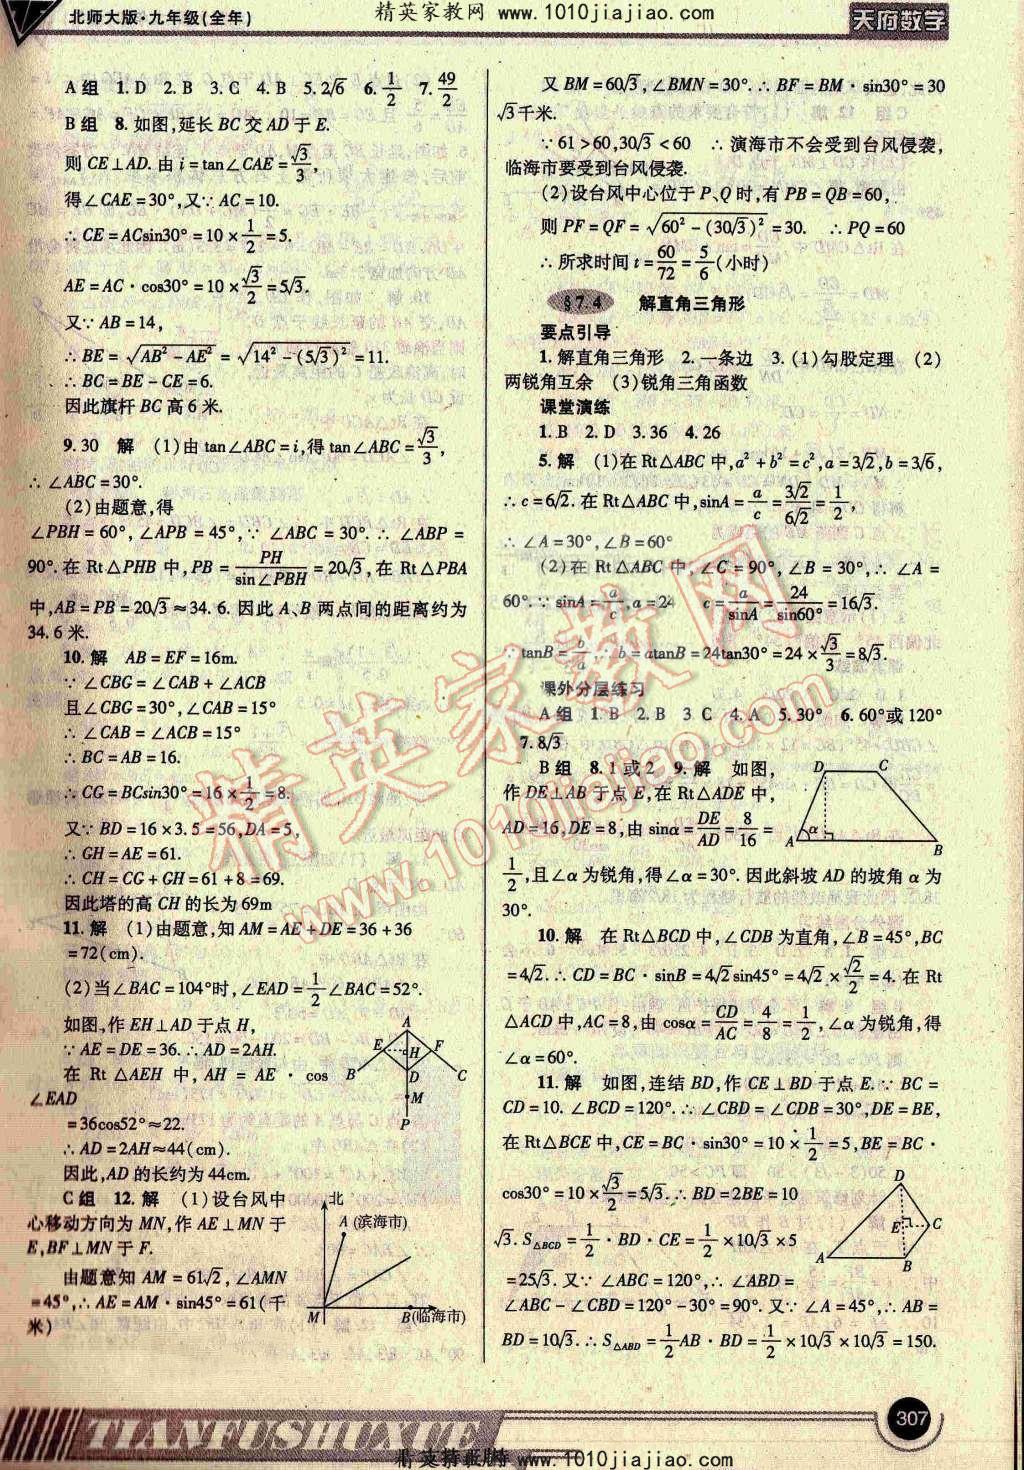 精英家教网 www.1010jiajiao.com
北师大版·九年级(全年)
天府数学
A组 1.D 2.B 3.C 4.B 5.2√6 6.1/2 7.49/2
B组 8.如图,延长BC交AD于E.
则CE⊥AD.由i=tan∠CAE=√3/3,
得∠CAE=30°,又∵AC=10.
∴CE=ACsin30°=10×1/2=5.
AE=AC·cos30°=10×√3/2=5√3.
又∵AB=14,
∴BE=√(AB²-AE²)=√(14²-(5√3)²)=11.
∴BC=BE-CE=6.
因此旗杆BC高6米.
9.30 解 (1)由tan∠ABC=i,得tan∠ABC=√3/3,
∴∠ABC=30°.
(2)由题意,得
∠PBH=60°,∠APB=45°,∵∠ABC=30°.∴∠ABP=
90°.在Rt△PHB中,PB=PH/sin∠PBH=20√3,在Rt△PBA
中,AB=PB=20√3≈34.6.因此A、B两点间的距离约为
34.6米.
10.解 AB=EF=16m.
∵∠CBG=∠CAB+∠ACB
且∠CBG=30°,∠CAB=15°
∴∠CAB=∠ACB=15°
∴BC=AB=16.
∴CG=BCsin30°=16×1/2=8.
又∵BD=16×3.5=56,DA=5,
∴GH=AE=61.
∴CH=CG+GH=61+8=69.
因此塔的高CH的长为69m
11.解 (1)由题意,知AM=AE+DE=36+36
=72(cm).
(2)当∠BAC=104°时,∠EAD=1/2∠BAC=52°.
如图,作EH⊥AD于点H,
∵AE=DE=36.∴AD=2AH.
在Rt△AEH中,AH=AE·cos
∠EAD
=36cos52°≈22.
∴AD=2AH≈44(cm).
因此,AD的长约为44cm.
A
E
H
F
B
D
C
M
P
C组 12.解 (1)设台风中
心移动方向为MN,作AE⊥MN于
E,BF⊥MN于F.
由题意知AM=61√2,∠AMN
=45°,∴AE=AM·sin45°=61(千
米)
北
A(滨海市)
M
B(临海市)
又BM=60√3,∠BMN=30°.∴BF=BM·sin30°=30
√3千米.
∵61>60,30√3<60 ∴演海市不会受到台风侵袭,
临海市要受到台风侵袭.
(2)设台风中心位于P、Q时,有PB=QB=60,
则PF=QF=√(60²-(30√3)²)=30. ∴PQ=60
∴所求时间t=60/72=5/6(小时)
§7.4 解直角三角形
要点引导
1.解直角三角形 2.一条边 3.(1)勾股定理 (2)
两锐角互余 (3)锐角三角函数
课堂演练
1.B 2.D 3.36 4.26
5.解 (1)在Rt△ABC中,a²+b²=c²,a=3√2,b=3√6,
∴c=6√2.在Rt△ABC中,sinA=a/c=3√2/6√2=1/2,
∴∠A=30°,∠B=60°
(2)在Rt△ABC中,∠C=90°,∠B=30°,∴∠A=
60°.∵sinA=a/c,a=24 c=a/sinA=24/sin60°=16√3.
∵tanB=b/a,∴b=atanB=24tan30°=24×√3/3=8√3.
课外分层练习
A组 1.B 2.B 3.C 4.A 5.30° 6.60°或120°
7.8√3
B组 8.1或2 9.解 如图,
作DE⊥AB于点E,在Rt△ADE中,
AD=16,DE=8,由sinα=DE/AD=8/16=
1/2,且∠α为锐角,得∠α=30°.因此斜坡AD的坡角α为
30°.
D
C
A
α
B
10.解 在Rt△BCD中,∠CDB为直角,∠B=45°,BC
=4√2.∴CD=BC·sinB=4√2sin45°=4√2×√2/2=4.在Rt
△ACD中,AC=8,由cosα=CD/AC=4/8=1/2,∠α为锐角,得
∠α=60°.
11.解 如图,连结BD,作CE⊥BD于点E.∵BC=
CD=10.∠BCD=120°.∴∠CBD=∠CDB=30°,DE=BE,
在Rt△BCE中,CE=BC·sin30°=10×1/2=5,BE=BC·
cos30°=10×√3/2=5√3.∴BD=2BE=10
√3.S△BCD=1/2·BD·CE=1/2×10√3×5
=25√3.又∵∠ABC=120°,∴∠ABD=
∠ABC-∠CBD=120°-30°=90°.又∵∠A=45°,∴AB=
BD=10√3.∴S△ABD=1/2AB·BD=1/2×10√3×10√3=150.
D
E
C
A
B
精英家教网
www.1010jiajiao.com
TIANFUSHUXUE
307
www.1010jiajiao.com